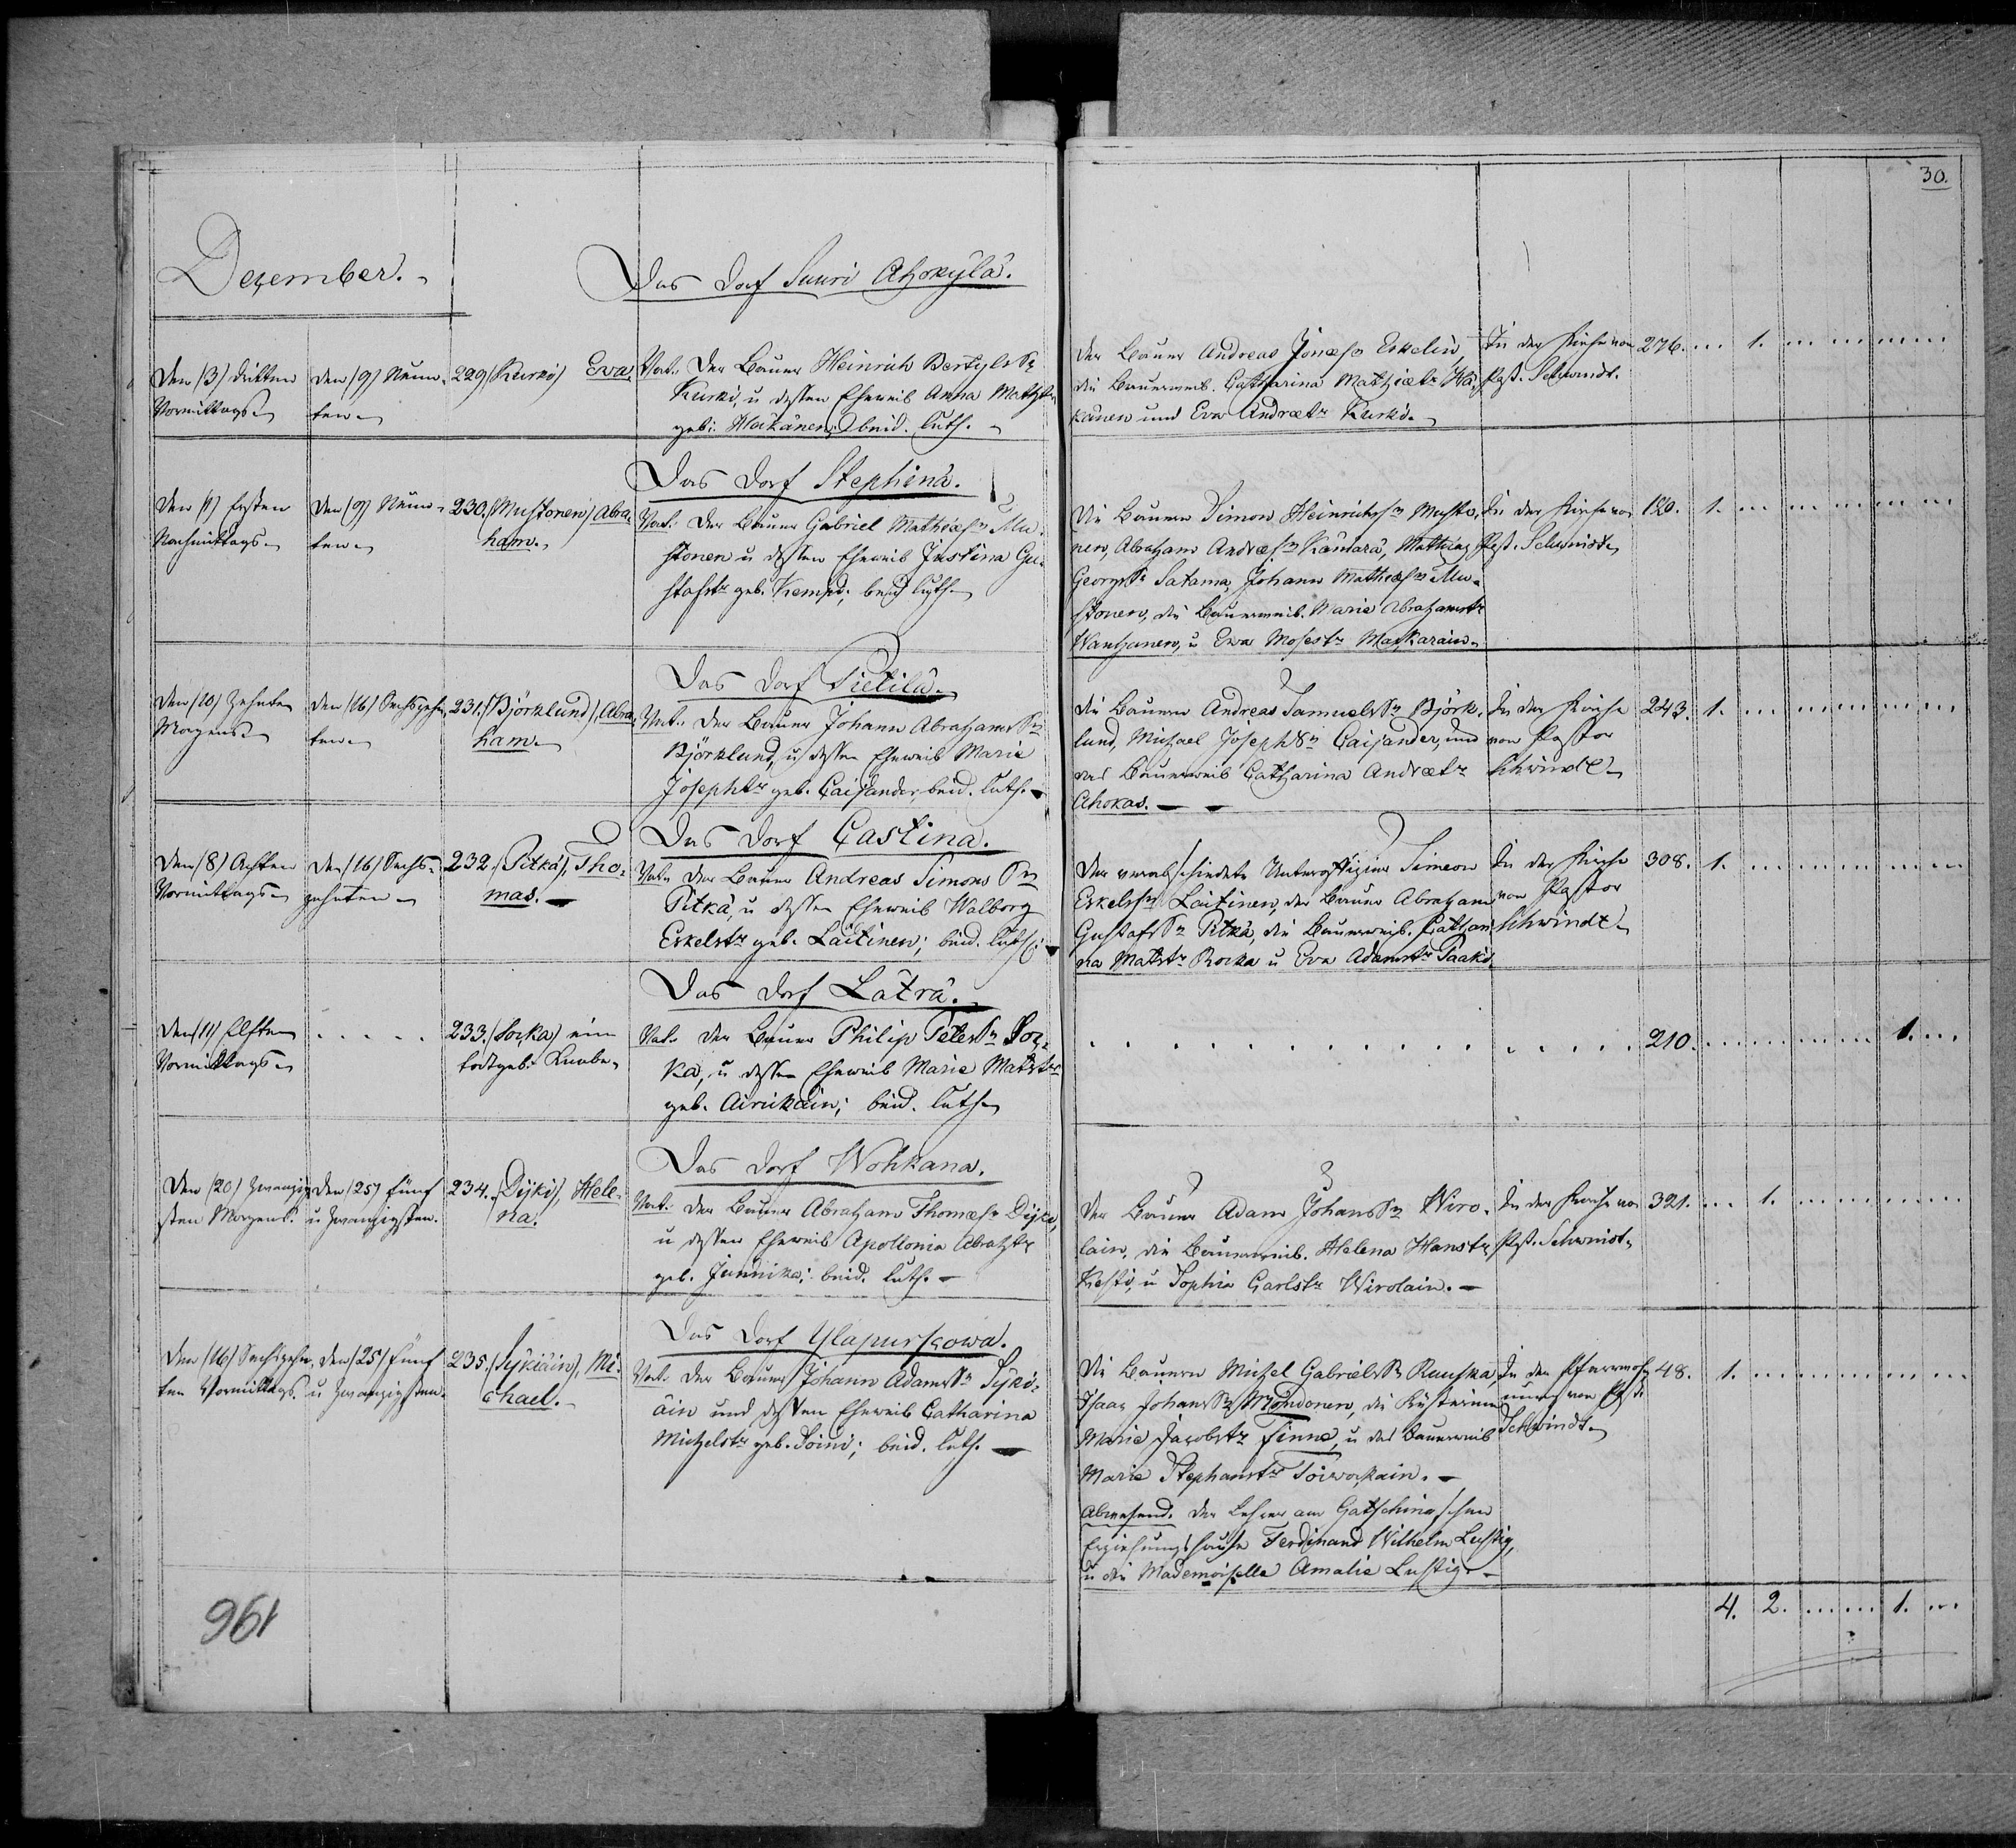 30.
December.
Das Dorf Suuri Ahokylä.
Den (3) dritten
Vormittags
den (9) Neun-
ten
229. (Kurki) Eva
Vat. Der Bauer Heinrich Bertyls Sn
Kurki, u dessen Eheweib Anna Mathtr
geb. beid. luth.
Der Bauer Andreas Jonæsn Eskelin,
die Bauerweib. Catharina Mathiætr
und Eva Andrætr Kurki.
In der Kirche von
Past. Schwindt.
276. ... 1. ... ... ... ...
Das Dorf Stephina.
Den (1) Ersten
Nachmittags
den (9) Neun-
ten
230. (Mustonen) Abra-
ham.
Vat. Der Bauer Gabriel Mathiæsn Mu-
stonen u dessen Eheweib Justina Gu-
stafstr geb. Kemppi; beid luth
Die Bauern Simon Heinrichsn Musto-
nen, Abraham Andræsn Kämärä, Mathias
Georgs Sn Satama, Johann Mathiæsn Mu-
stonen, die Bauerweib. Marie Abrahamstr
Wanhanen, u Eva Mosestr
In der Kirche von
Past. Schwindt
180. 1. ... ... ... ... ...
Das Dorf Pietilä.
Den (10) Zehnten
Morgens
den (16) Sechszehn-
ten
231. (Björklund), Abra-
ham
Vat. Der Bauer Johann Abrahams Sn
Björklund, u dessen Eheweib Marie
Josephtr geb. Caijander, beid. luth.
Die Bauern Andreas Samuels Sn Björk-
lund, Michael Joseph Sn Caijander, und
das Bauerweib Catharina Andrætr
Ahokas.
In der Kirche
von Pastor
Schwindt
243. 1. ... ... ... ... ...
Das Dorf Castina.
Den (8) Achten
Vormittags
den (16) Sechs-
zehnten
232. (Pitkä), Tho-
mas.
Vat. Der Bauer Andreas Simons Sn
Pitkä, u dessen Eheweib Walborg
Eskelstr geb. Laitinen; beid. luth.
Der verabschiedete Unteroffizier Simeon
Eskelsn Laitinen, der Bauer Abraham
Gustafs Sn Pitkä, die Bauerweib. Cathari-
na Matstr Rocka u Eva Adamstr Paaki.
In der Kirche
von Pastor
Schwindt
308. 1. ... ... ... ... ...
Das Dorf Laträ.
Den (11) Elften
Vormittags
. . . . .
233. (Socka) ein
todtgeb. Knabe
Vat. Der Bauer Philip Peters Sn Soc-
ka, u dessen Eheweib Marie Matstr
geb. Airikäin; beid. luth
210. ... ... ... ... 1. ...
Das Dorf Wohkana.
Den (20) Zwanzig-
sten Morgens.
den (25) fünf
u Zwanzigsten.
234. (Dijki), Hele-
na.
Vat. Der Bauer Abraham Thomæsn Dijki,
u dessen Eheweib Apollonia Abrahtr
geb. Junnika; beid. luth.
Der Bauer Adam Johans Sn Wiro-
lain, die Bauerweib. Helena Hanstr
Kesti, u Sophia Carlstr Wirolain.
In der Kirche von
Past. Schwindt
321. ... 1. ... ... ... ...
Das Dorf Ylapurskowa.
Den (16) Sechszehn-
ten Vormittags
den (25) fünf
u Zwanzigsten.
235. (Sykiäin), Mi-
chael.
Vat. Der Bauer Johann Adams Sn Syki-
äin und dessen Eheweib Catharina
Michelstr geb. Soini; beid. luth.
Die Bauern Michel Gabriels Sn Ruuska,
Isaac Johans Sn Mondonen, die Küsterinn
Marie Jacobstr Finne, u das Bauerweib
Marie Stephanstr
Abwesend. Der Lehrer am Gatschinaschen
Erziehungshause Ferdinand Wilhelm Lustig,
u die Mademoiselle Amalie Lustig.
In der Pfarrwoh-
nung von Past.
Schwindt
48. 1. ... ... ... ... ...
4. 2. ... ... 1. ...
196